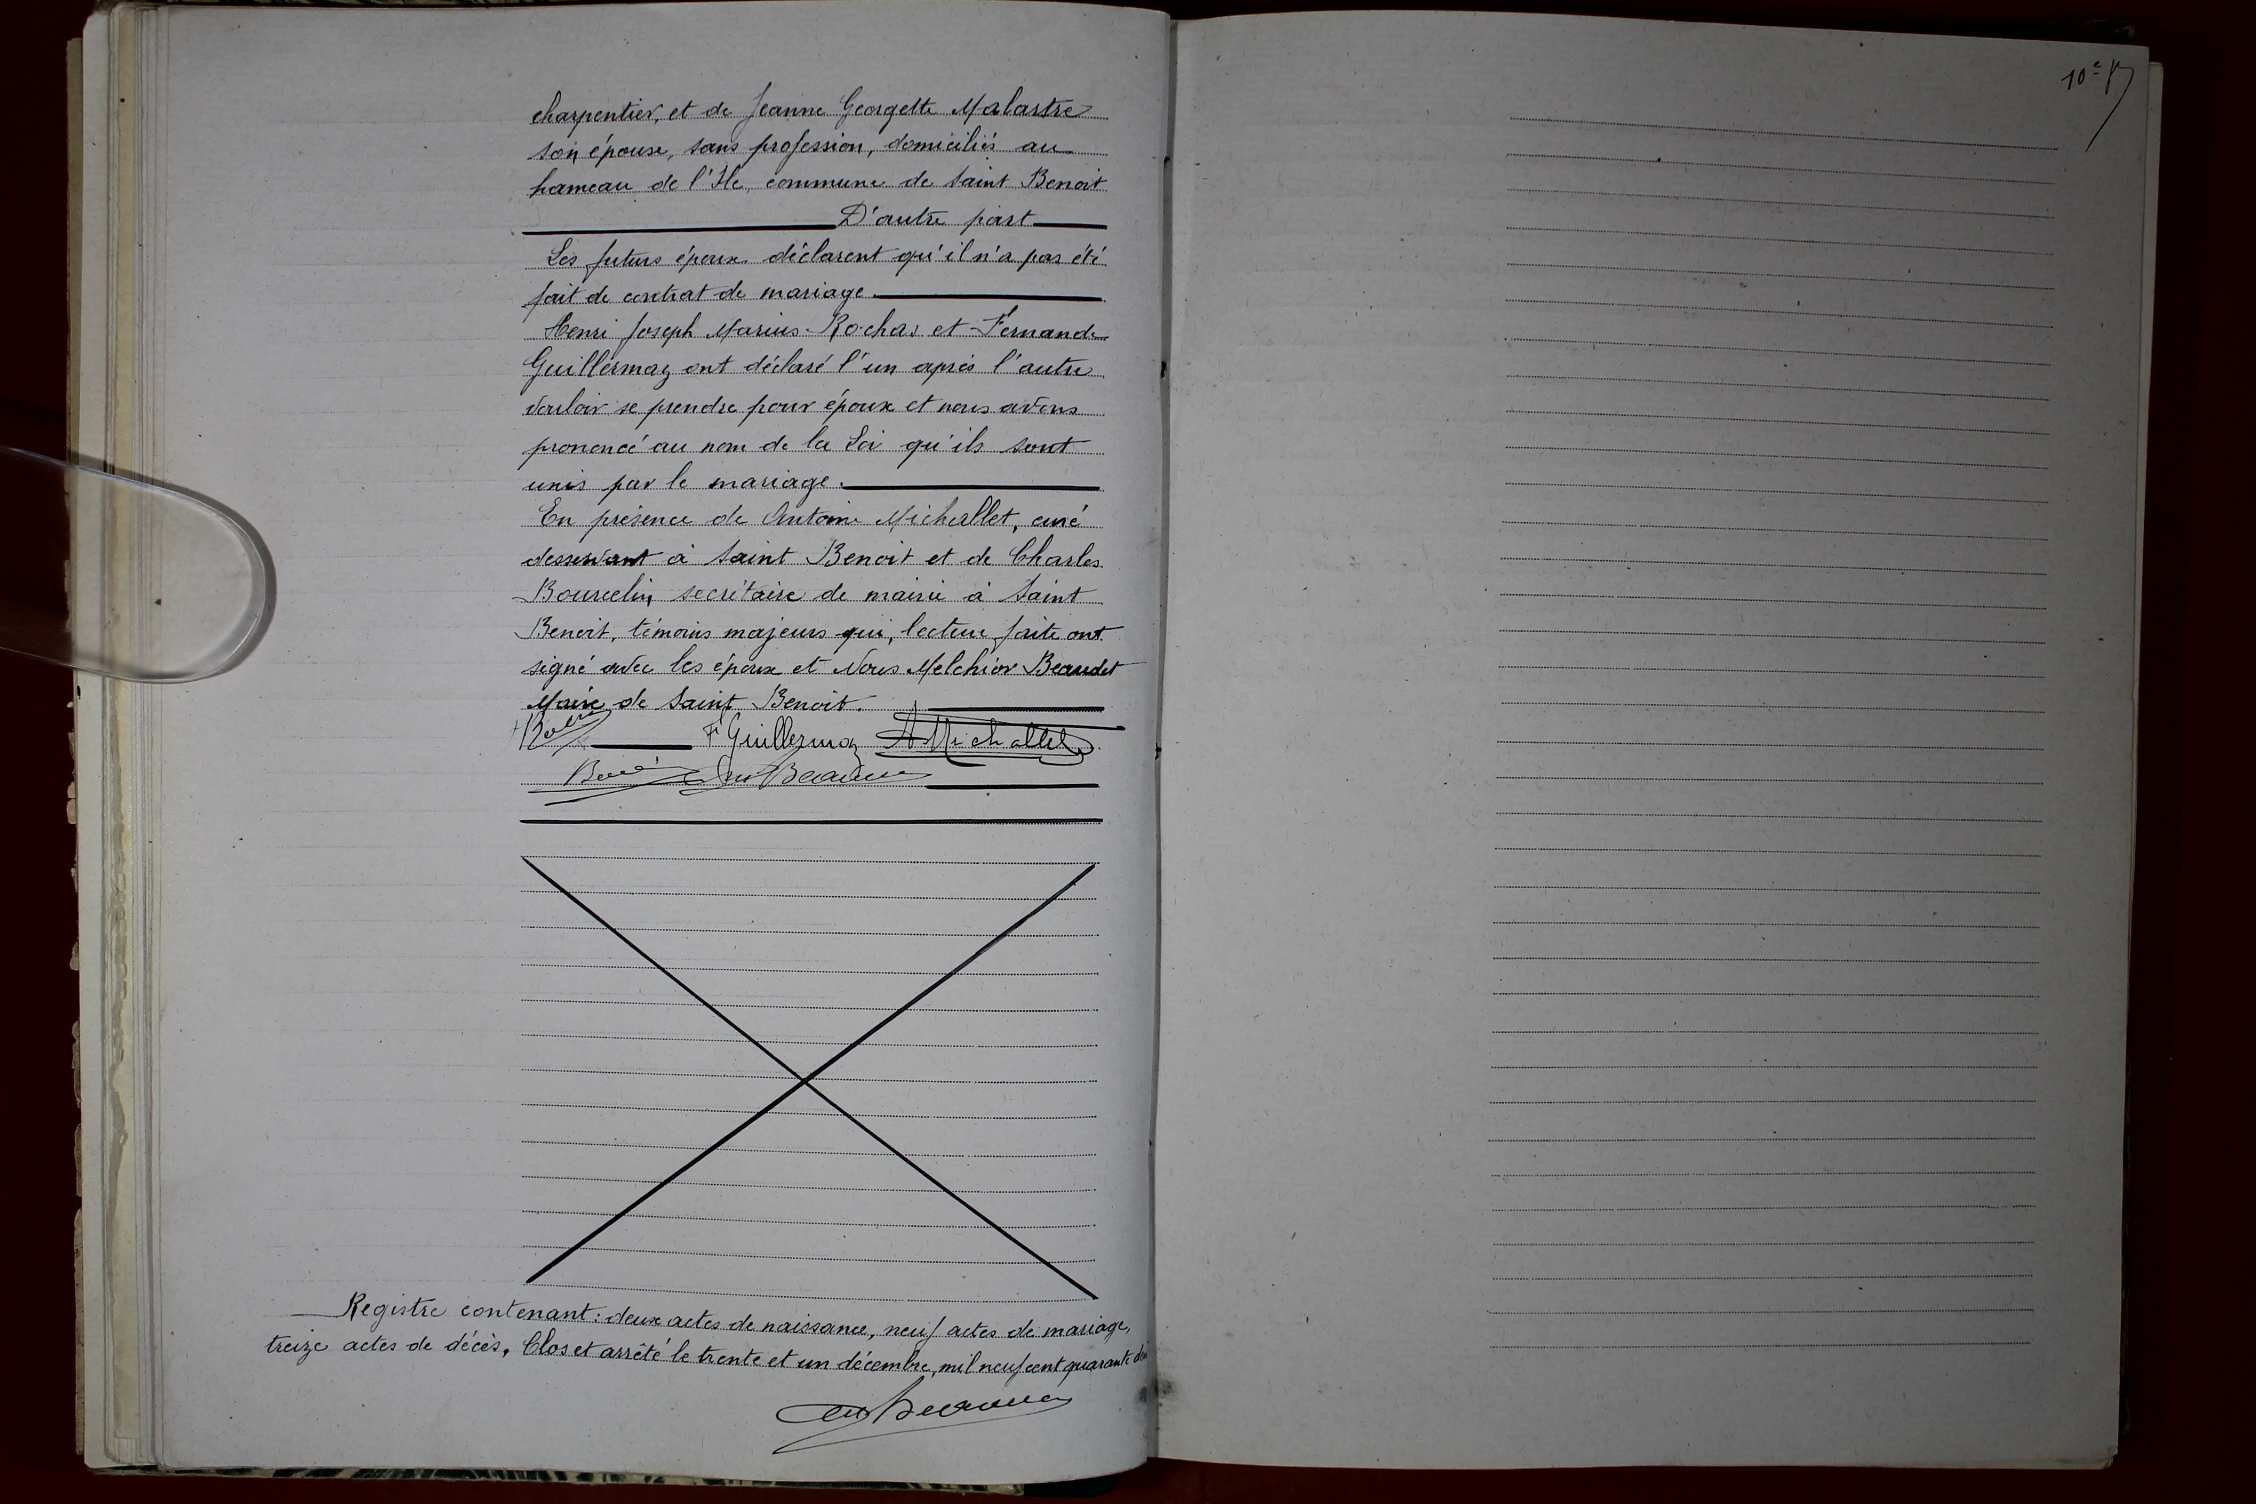 charpentier, et de Jeanne Georgette Malartre
son épouse, sans profession, domiciliés au
hameau de l'Ile, commune de Saint Benoit
D'autre part
Les futurs époux déclarent qu'il n'a pas été
fait de contrat de mariage.
Henri Joseph Marius Rochas et Fernande
Guillermaz ont déclaré l'un après l'autre
vouloir se prendre pour époux et nous avons
prononcé au nom de la Loi qu'ils sont
unis par le mariage.
En présence de Antoine Michallet, curé
desservant à Saint Benoit et de Charles
Bourcelin, secrétaire de mairie à Saint
Benoit, témoins majeurs qui, lecture faite ont
signé avec les époux et Nous Melchior Beaudet
Maire de Saint Benoit.
F Guillermaz A Michallet
Registre contenant : deux actes de naissance, neuf actes de mariage,
treize actes de décès. Clos et arrêté le trente et un décembre, mil neuf cent quarante
10e